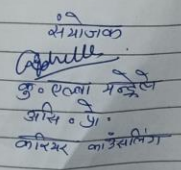 संयोजक
कु॰ एल्बा मन्द्रेले
असि॰ प्रो॰
करियर काउंसलिंग